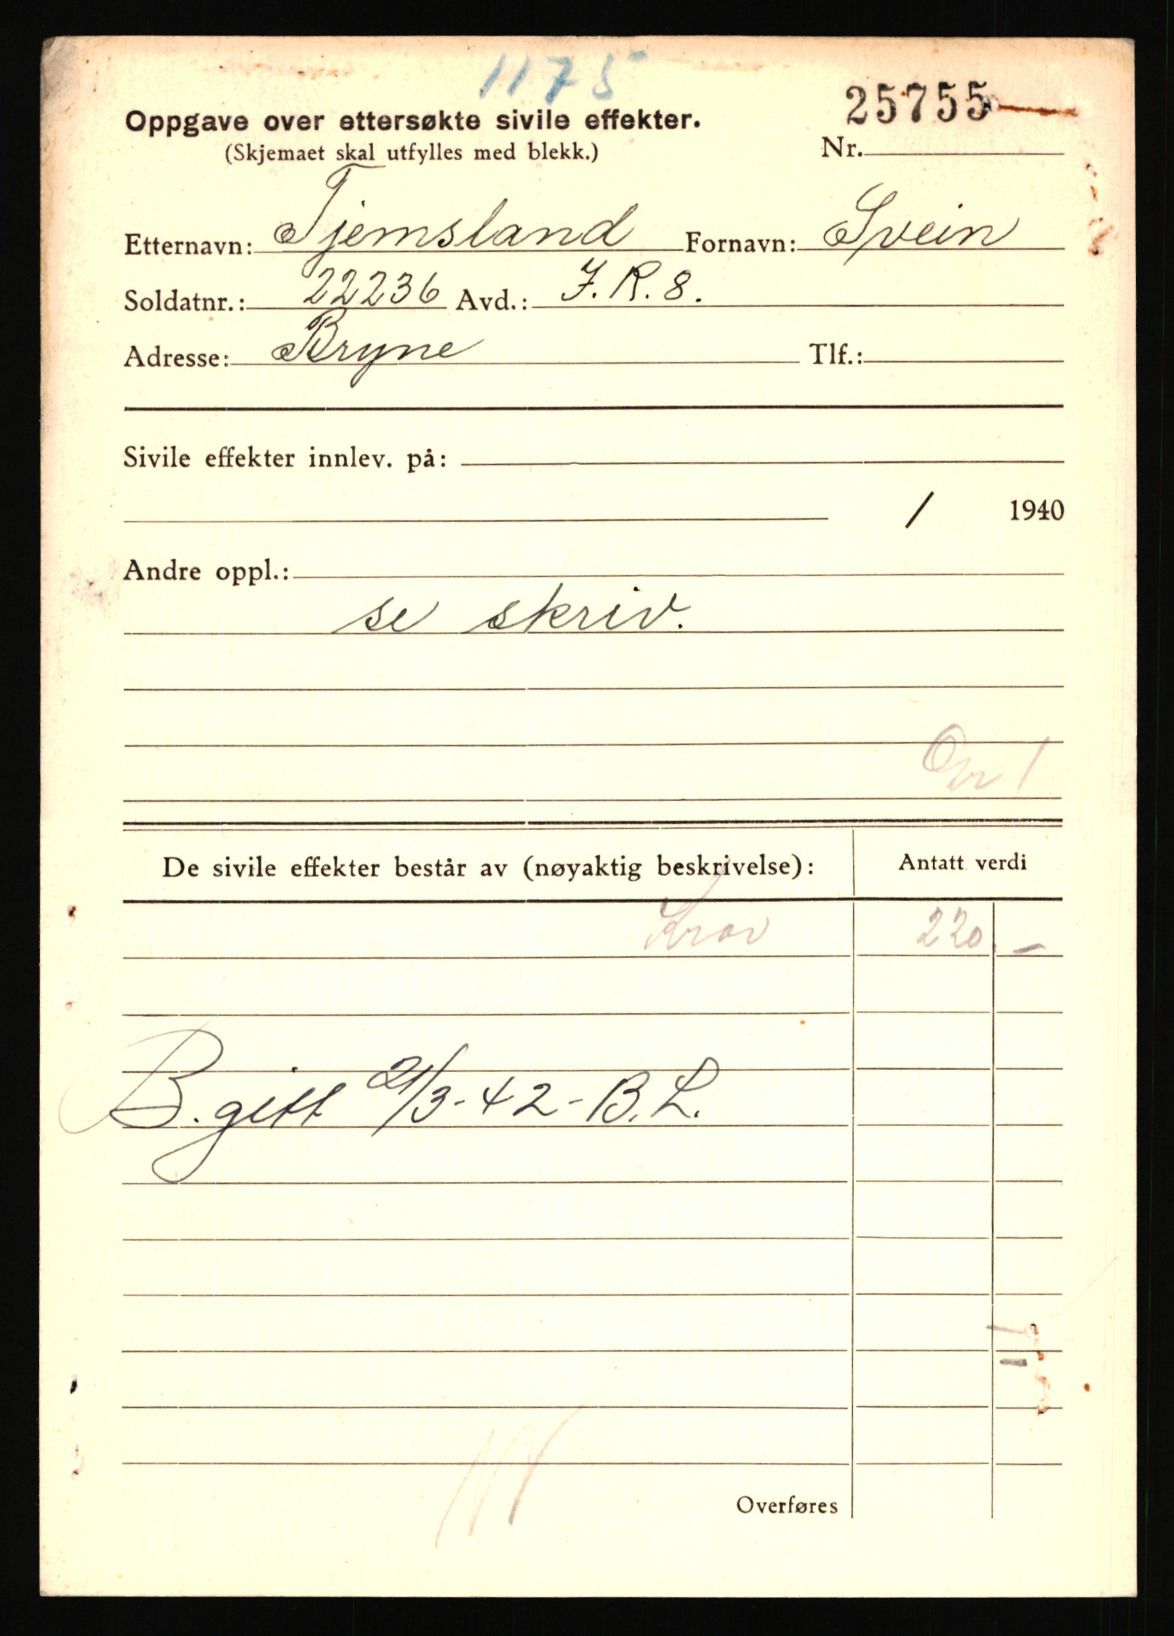 1175
25755
Oppgave over ettersøkte sivile effekter.
(Skjemaet skal utfylles med blekk.)
Nr.
Etternavn: Tjemsland Fornavn: Svein
Soldatnr.: 22236 Avd.: J.R.8.
Adresse: Bryne Tlf.:
Sivile effekter innlev. på:
/ 1940
Andre oppl.:
se skriv.
De sivile effekter består av (nøyaktig beskrivelse): Antatt verdi
Krav 220.-
B.gitt 21/3-42-B.L.
Overføres